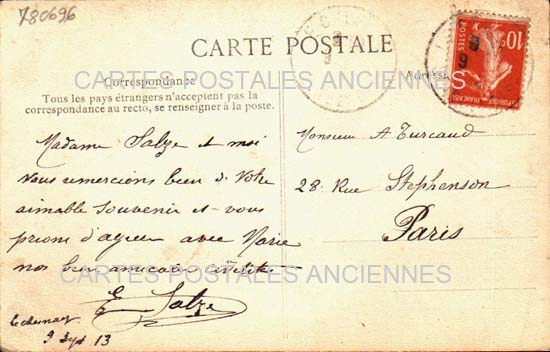 780696
CARTE POSTALE
Correspondance
Adresse
Tous les pays étrangers n'acceptent pas la
correspondance au recto, se renseigner à la poste.
CARTES POSTALES ANCIENNES
10c
POSTES
REPUBLIQUE FRANÇAISE
9
9
Madame Salze et moi
vous remercions bien de votre
aimable souvenir et vous
prions d'agréer avec Marie
nos bien amicales
E Salze
9 Sept 13
Monsieur A Turcaud
28 Rue Stephenson
Paris
CARTES POSTALES ANCIENNES